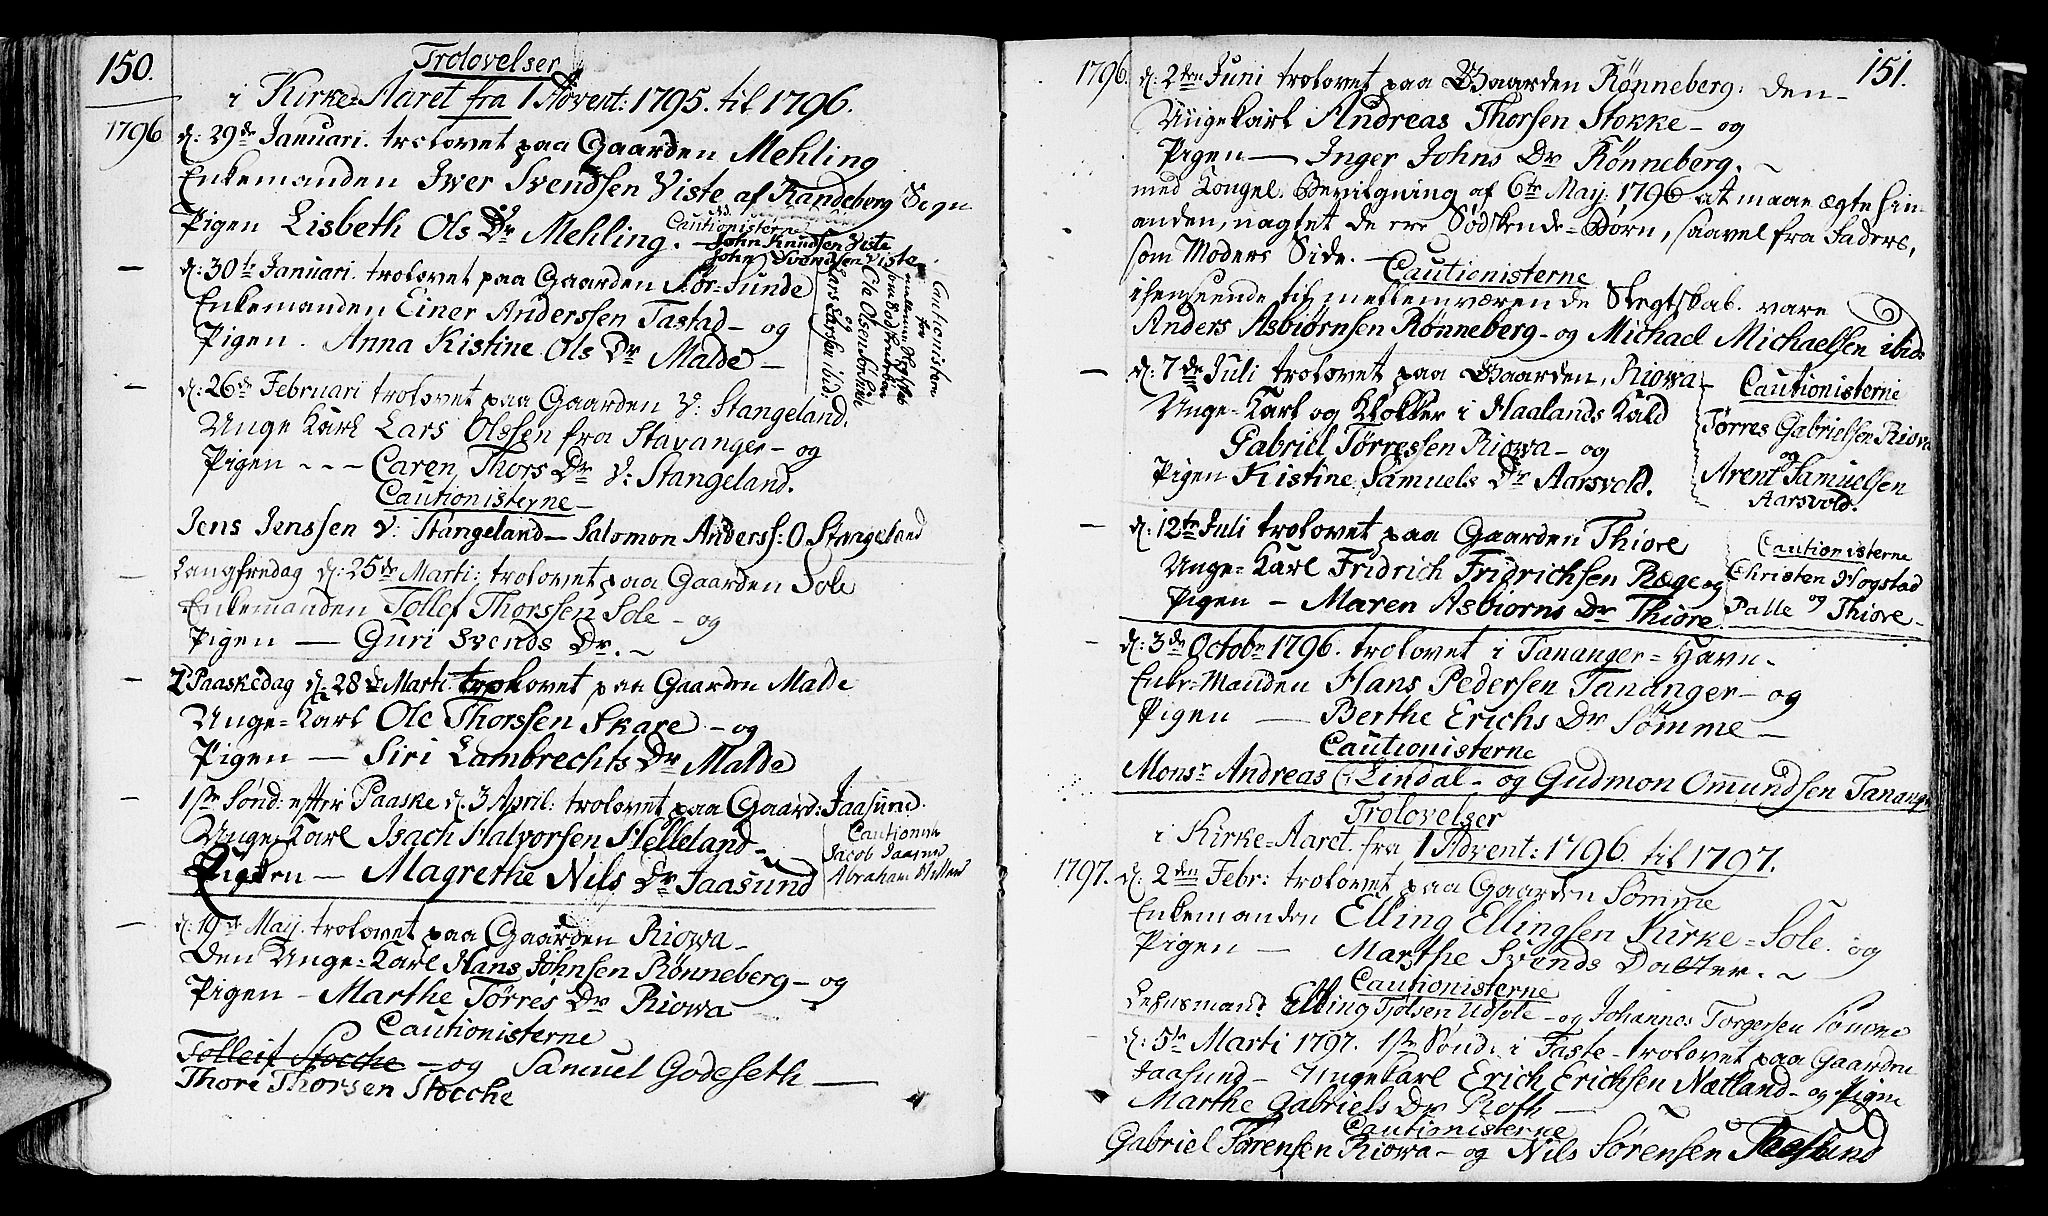 150.
Trolovelser
i Kirke-Aaret fra 1 Advent: 1795. til 1796.
1796
d: 29de Januari. trolovet paa Gaarden Mehling
Enkemanden Iwer Svendsen Viste af Randeberg Sogn
Pigen Lisbeth Ols Dr Mehling.
Cautionisterne
John Knudsen Viste
John Svendsen Viste
d: 30te Januari. trolovet paa Gaarden Sør-Sunde
Enkemanden Einer Anderssen Tastad - og
Pigen. Anna Kistine Ols Dr Malde -
Cautionister
for
Ole Olsen Sør Sunde
og
Lars Larssen ibid:
d: 26de Februari trolovet paa Gaarden V: Stangeland.
Unge Karl Lars Olssen fra Stavanger - og
Pigen - - - Caren Thors Dr V: Stangeland.
Cautionisterne -
Jens Jenssen V: Stangeland - Salomon Anderss: O. Stangeland
Langfredag d: 25de Marti: trolovet paa Gaarden Sole
Enkemanden Tollef Thorssen Sole - og
Pigen — Guri Svends Dr. ~
2 Paaskedag d: 28de Marti. trolovet paa Gaarden Malde
Unge-Karl Ole Thorssen Skare - og
Pigen — Siri Lambrechts Dr Malde
1ste Sønd: efter Paaske d: 3 April: trolovet paa Gaard: Jaasund.
Unge-Karl Isach Halvorsen Helleland -
Pigen — Magrethe Nils Dr Jaasund
Cautionist
Jacob Jaasund
Abraham
d: 19de Maij. trolovet paa Gaarden Riowa -
Den Unge-Karl Hans Johnsen Rønneberg - og
Pigen - Marthe Tørres Dr Riowa
Cautionisterne
Tolleif Stocche - og Samuel Godeseth —
Thore Thorsen Stocche
151.
1796.
d: 2den Juni trolovet paa Gaarden Rønneberg: Den -
Ungekarl Andreas Thorsen Stokke - og
Pigen — Inger Johns Dr Rønneberg. ~
med Kongel. Bevilgning af 6te May: 1796 at maae ægte hin-
anden, uagtet de ere Sødskende-Børn, saavel fra Faders,
som Moders Side. -
Cautionisterne
ihenseende til mellemværende Slegtskab. vare
Anders Asbiørnsen Rønneberg - og Michael Michaelsen ibid:
d: 7de Juli trolovet paa Gaarden, Riowa
Unge-Karl og Klokker i Haalands Kald
Gabriel Tørressen Riowa - og
Pigen Kistine Samuels Dr Aarsvold.
Cautionisterne
Tørres Gabrielsen Riowa
og
Arent Samuelsen
Aarsvold.
d: 12te Juli trolovet paa Gaarden Thiore
Unge-Karl Fridrich Fridrichsen Ræge og
Pigen - Maren Asbiorns Dr Thiore
Cautionisterne
Christen Hogstad
og
Palle Thiore -
d: 3de Octobr 1796. trolovet i Tananger-Havn -
Enke-Manden Hans Pedersen Tananger - og
Pigen — Berthe Erichs Dr Sømme -
Cautionisterne
Monsr Andreas Lindal - og Gudmon Omundsen Tananger
Trolovelser
i Kirke-Aaret fra 1 Advent: 1796. til 1797.
1797.
d: 2den Febr: trolovet paa Gaarden Sømme
Enkemanden Elling Ellingsen Kirke-Sole. og
Pigen — Marthe Svends Datter. ~
Cautionisterne
Lehnsmand Elling Tjølsen Udsole - og Johannes Torgersen Sømme
d: 5te Marti 1797. 1ste Sønd: i Faste - trolovet paa Gaarden
Jaasund - Ungekarl Erich Erichsen Nætland - og Pigen
Marthe Gabriels Dr Roth —
Cautionisterne
Gabriel Tørensen Riowa - og Nils Sørensen Jaasund